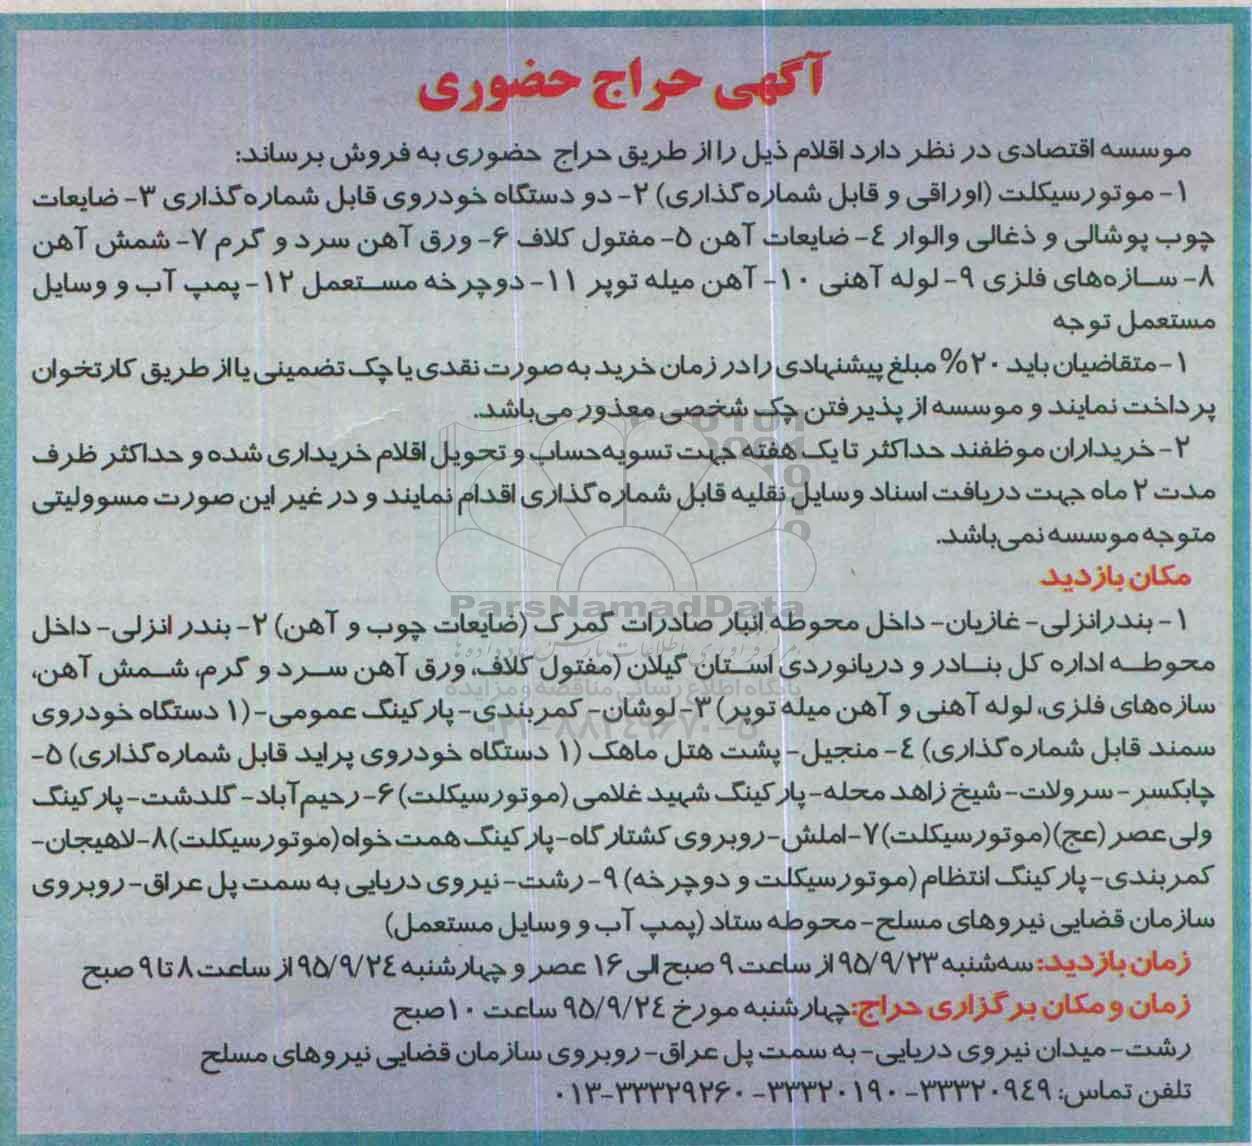 آگهی حراج حضوری
موسسه اقتصادی در نظر دارد اقلام ذیل را از طریق حراج حضوری به فروش برساند:
۱- موتورسیکلت (اوراقی و قابل شماره‌گذاری) ۲- دو دستگاه خودروی قابل شماره‌گذاری ۳- ضایعات
چوب پوشالی و ذغالی والوار ٤- ضایعات آهن ۵- مفتول کلاف ۶- ورق آهن سرد و گرم ۷- شمش آهن
۸- سازه‌های فلزی ۹- لوله آهنی ۱۰- آهن میله توپر ۱۱- دوچرخه مستعمل ۱۲- پمپ آب و وسایل
مستعمل توجه
۱- متقاضیان باید ۲۰% مبلغ پیشنهادی را در زمان خرید به صورت نقدی یا چک تضمینی یا از طریق کارتخوان
پرداخت نمایند و موسسه از پذیرفتن چک شخصی معذور می‌باشد.
۲- خریداران موظفند حداکثر تا یک هفته جهت تسویه‌حساب و تحویل اقلام خریداری شده و حداکثر ظرف
مدت ۲ ماه جهت دریافت اسناد وسایل نقلیه قابل شماره‌گذاری اقدام نمایند و در غیر این صورت مسوولیتی
متوجه موسسه نمی‌باشد.
مکان بازدید
۱- بندرانزلی- غازیان- داخل محوطه انبار صادرات گمرک (ضایعات چوب و آهن) ۲- بندر انزلی- داخل
محوطه اداره کل بنادر و دریانوردی استان گیلان (مفتول کلاف، ورق آهن سرد و گرم، شمش آهن،
سازه‌های فلزی، لوله آهنی و آهن میله توپر) ۳- لوشان- کمربندی- پارکینگ عمومی- (۱ دستگاه خودروی
سمند قابل شماره‌گذاری) ٤- منجیل- پشت هتل ماهک (۱ دستگاه خودروی پراید قابل شماره‌گذاری) ۵-
چابکسر- سرولات- شیخ زاهد محله- پارکینگ شهید غلامی (موتورسیکلت) ۶- رحیم‌آباد- گلدشت- پارکینگ
ولی عصر (عج) (موتورسیکلت) ۷- املش- روبروی کشتارگاه- پارکینگ همت خواه (موتورسیکلت) ۸- لاهیجان-
کمربندی- پارکینگ انتظام (موتورسیکلت و دوچرخه) ۹- رشت- نیروی دریایی به سمت پل عراق- روبروی
سازمان قضایی نیروهای مسلح- محوطه ستاد (پمپ آب و وسایل مستعمل)
زمان بازدید: سه‌شنبه ۹۵/۹/۲۳ از ساعت ۹ صبح الی ۱۶ عصر و چهارشنبه ۹۵/۹/۲٤ از ساعت ۸ تا ۹ صبح
زمان و مکان برگزاری حراج: چهارشنبه مورخ ۹۵/۹/۲٤ ساعت ۱۰ صبح
رشت- میدان نیروی دریایی- به سمت پل عراق- روبروی سازمان قضایی نیروهای مسلح
تلفن تماس: ۳۳۳۲۰۹٤۹- ۳۳۳۲۰۱۹۰- ۳۳۳۲۹۲۶۰-۰۱۳
ParsNamadData
پایگاه اطلاع رسانی مناقصه و مزایده
۰۲۱-۸۸۳٤۹۶۷۰-۵